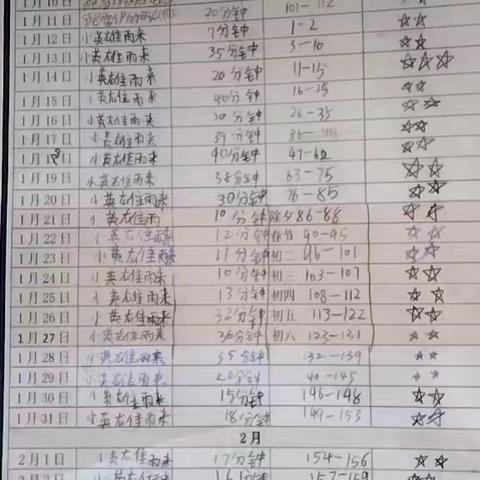 1月10日 101-112 ☆☆
1月11日 20分钟 1-2 ☆☆
1月12日 小英雄雨来 7分钟 3-10 ☆☆
1月13日 小英雄雨来 35分钟 11-15 ☆☆☆
1月14日 小英雄雨来 20分钟 16-25 ☆☆
1月15日 小英雄雨来 40分钟 26-35 ☆☆
1月16日 小英雄雨来 20分钟 ☆☆
1月17日 小英雄雨来 39分钟 47-62 ☆☆
1月18日 小英雄雨来 40分钟 63-75 ☆☆
1月19日 小英雄雨来 38分钟 76-85 ☆☆
1月20日 小英雄雨来 30分钟 ☆☆
1月21日 小英雄雨 10分钟 除夕 86-88 ☆☆
1月22日 小英雄雨来 12分钟 春节 90-95 ☆☆
1月23日 小英雄雨来 11分钟 初二 96-101 ☆☆
1月24日 小英雄雨来 10分钟 初三 103-107 ☆☆
1月25日 小英雄雨来 13分钟 初四 108-112 ☆☆
1月26日 小英雄雨来 32分钟 初五 113-122 ☆☆
1月27日 小英雄雨来 36分钟 初六 123-131 ☆☆
1月28日 小英雄雨来 35分钟 132-139 ☆☆
1月29日 小英雄雨来 20分钟 40-145 ☆☆
1月30日 小英雄雨来 15分钟 146-148 ☆☆
1月31日 小英雄雨来 18分钟 149-153 ☆☆
2月
2月1日 小英雄雨来 17分钟 154-156 ☆☆
2月2日 小英雄雨来 16分钟 157-159 ☆☆